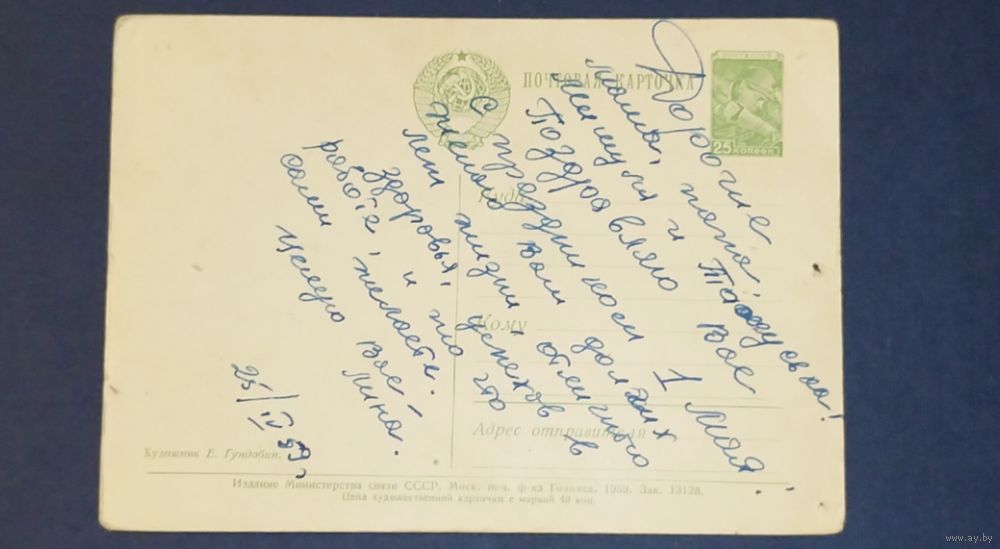 ПОЧТОВАЯ КАРТОЧКА
ПОЧТА СССР
25 КОПЕЕК
Куда
Кому
Адрес отправителя
Дорогие
мама, папа,
и Таж
Поздравляю Вас
с праздником 1 мая!
желаю Вам долгих
лет жизни, отличного
здоровья, успехов в
работе, и
жизни.
Целую Вас
Лина.
25/IV 59 г.
Художник Е. Гундобин.
Издание Министерства связи СССР. Моск. поч. ф-ка Гознака. 1959. Зак. 13128.
Цена художественной карточки с маркой 40 коп.
www.ay.by